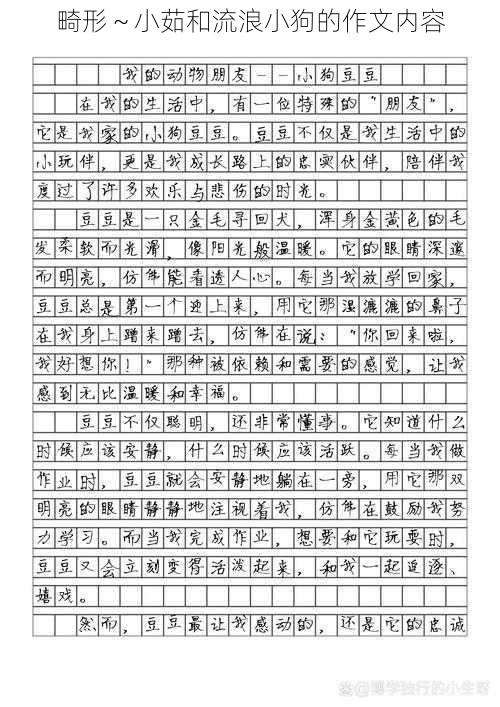 畸形～小茹和流浪小狗的作文内容
我的动物朋友--小狗豆豆
在我的生活中，有一位特殊的“朋友”，
它是我家的小狗豆豆。豆豆不仅是我生活中的
小玩伴，更是我成长路上的忠实伙伴，陪伴我
度过了许多欢乐与悲伤的时光。
豆豆是一只金毛寻回犬，浑身金黄色的毛
发柔软而光滑，像阳光般温暖。它的眼睛深邃
而明亮，仿佛能看透人心。每当我放学回家，
豆豆总是第一个迎上来，用它那湿漉漉的鼻子
在我身上蹭来蹭去，仿佛在说：“你回来啦，
我好想你！”那种被依赖和需要的感觉，让我
感到无比温暖和幸福。
豆豆不仅聪明，还非常懂事。它知道什么
时候应该安静，什么时候应该活跃。每当我做
作业时，豆豆就会安静地躺在一旁，用它那双
明亮的眼睛静静地注视着我，仿佛在鼓励我努
力学习。而当我完成作业，想要和它玩耍时，
豆豆又会立刻变得活泼起来，和我一起追逐、
嬉戏。
然而，豆豆最让我感动的，还是它的忠诚
@博学独行的小生呀